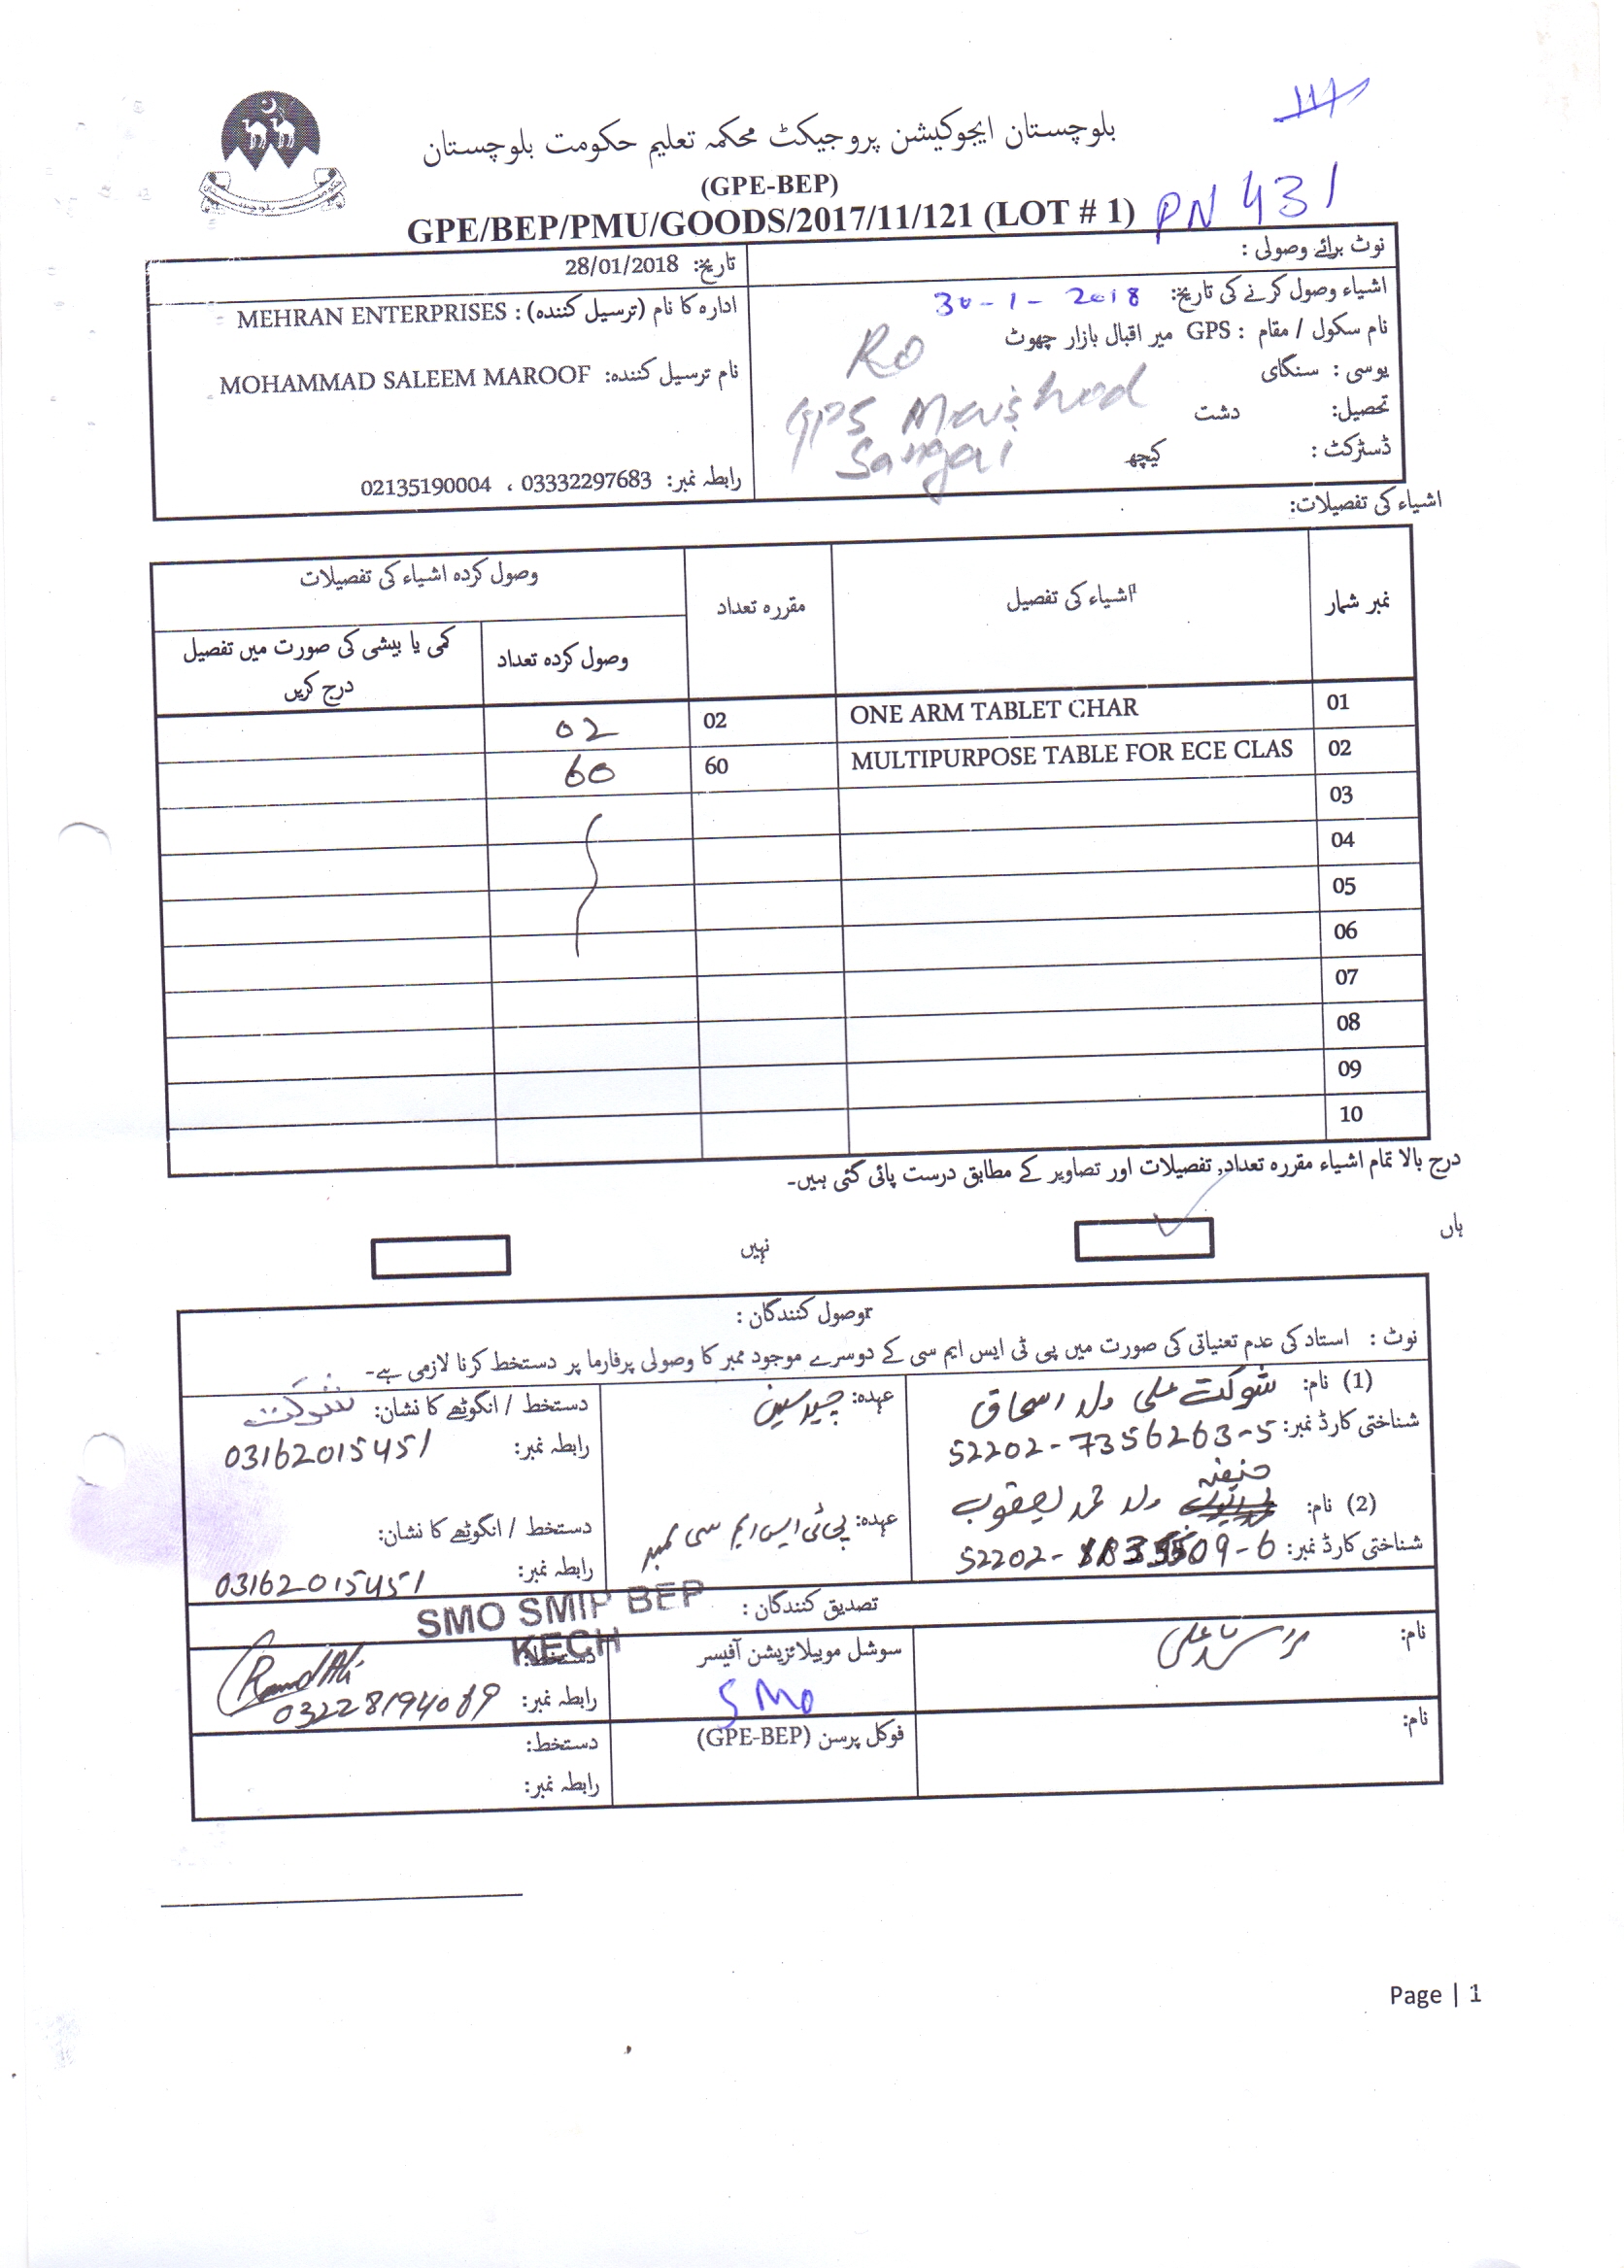 بلوچستان ایجوکیشن پروجیکٹ محکمہ تعلیم حکومت بلوچستان
(GPE-BEP)
GPE/BEP/PMU/GOODS/2017/11/121 (LOT # 1) PN 431
نوٹ برائے وصولی :
تاریخ: 28/01/2018
اشیاء وصول کرنے کی تاریخ: 30-1-2018
ادارہ کا نام (ترسیل کنندہ) : MEHRAN ENTERPRISES
نام سکول / مقام : GPS میر اقبال بازار چھوٹ
Ro
GPS Mashod
Sangai
یوسی : سنگای
نام ترسیل کنندہ: MOHAMMAD SALEEM MAROOF
تحصیل: دشت
ڈسٹرکٹ : کیچھ
رابطہ نمبر: 03332297683 ، 02135190004
اشیاء کی تفصیلات:
نمبر شمار اشیاء کی تفصیل مقررہ تعداد وصول کردہ اشیاء کی تفصیلات
وصول کردہ تعداد کمی یا بیشی کی صورت میں تفصیل درج کریں
01 ONE ARM TABLET CHAR 02 02
02 MULTIPURPOSE TABLE FOR ECE CLAS 60 60
03
04
05
06
07
08
09
10
درج بالا تمام اشیاء مقررہ تعداد, تفصیلات اور تصاویر کے مطابق درست پائی گئی ہیں۔
ہاں نہیں
وصول کنندگان :
نوٹ : استاد کی عدم تعنیاتی کی صورت میں پی ٹی ایس ایم سی کے دوسرے موجود ممبر کا وصولی پرفارما پر دستخط کرنا لازمی ہے۔
(1) نام: شوکت علی ولد اسحاق عہدہ: چیرمین دستخط / انگوٹھے کا نشان: شوکت
شناختی کارڈ نمبر: 52202-7356263-5 رابطہ نمبر: 03162015451
(2) نام: حنیفہ ولد محمد یعقوب عہدہ: پی ٹی ایس ایم سی ممبر دستخط / انگوٹھے کا نشان:
شناختی کارڈ نمبر: رابطہ نمبر: 03162015451
تصدیق کنندگان :
SMO SMIP BEP
KECH
نام: سوشل موبیلائزیشن آفیسر دستخط:
SMO رابطہ نمبر: 03228194089
نام: فوکل پرسن (GPE-BEP) دستخط:
رابطہ نمبر:
Page | 1